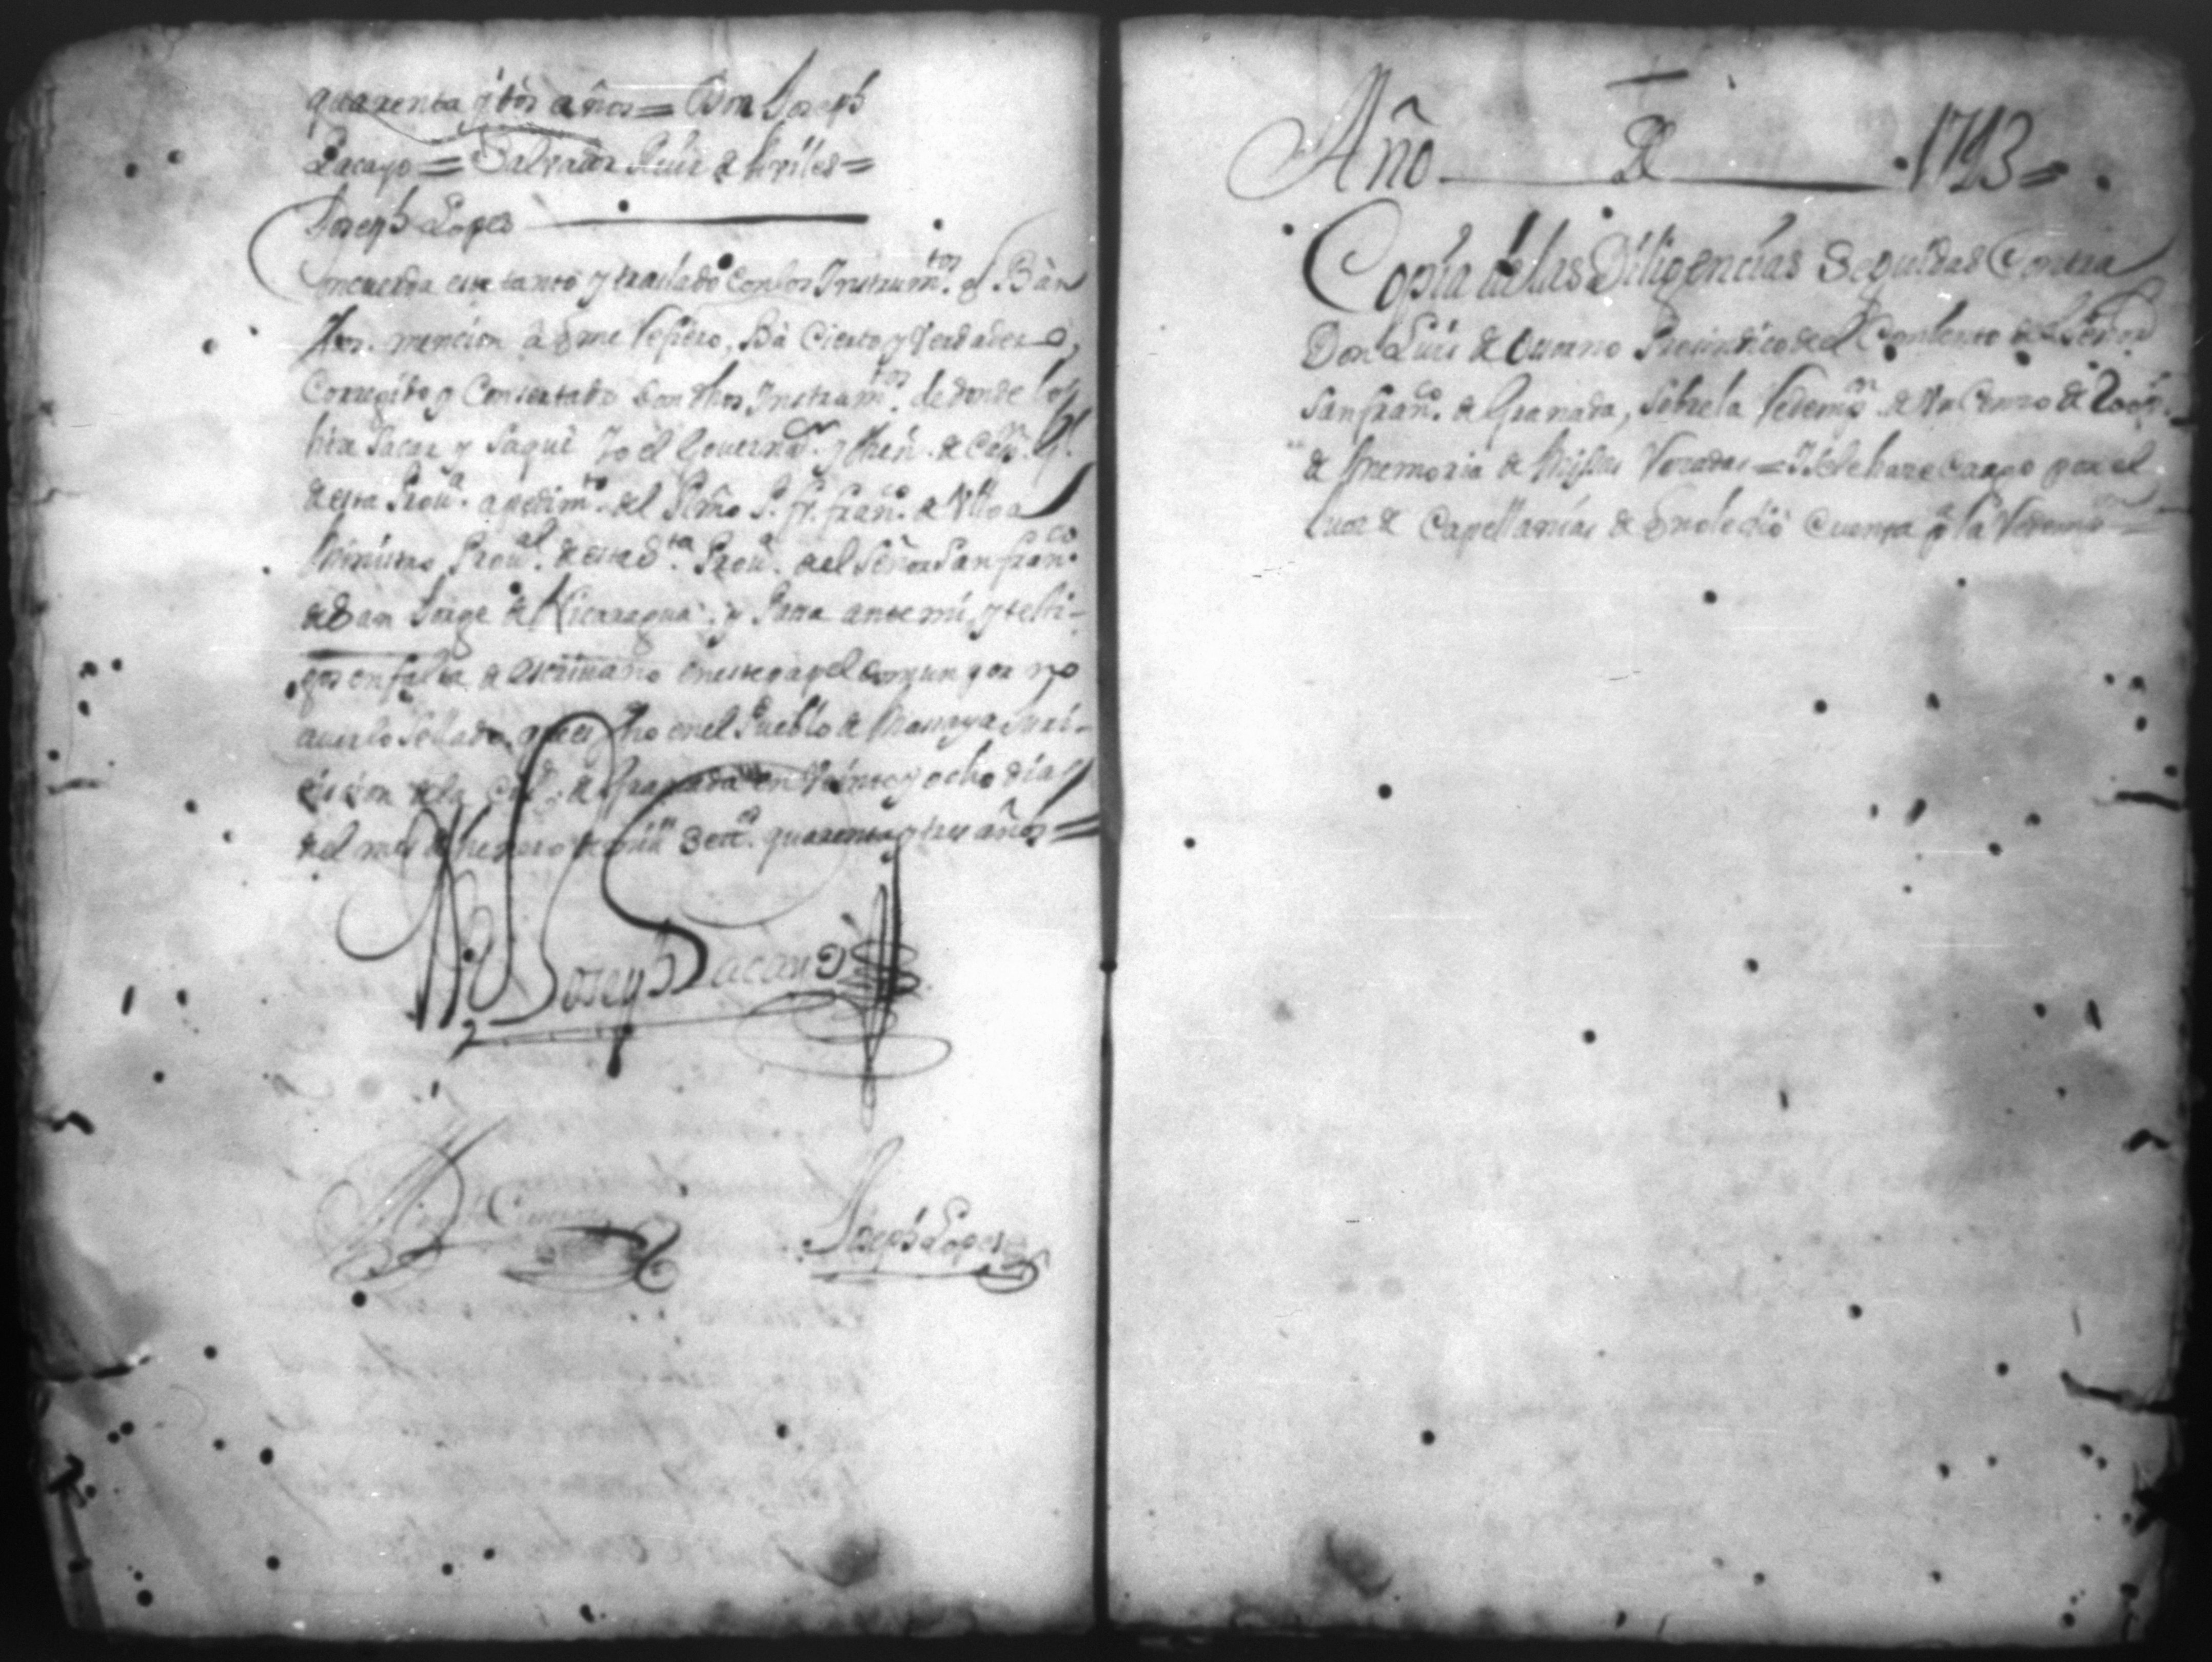 quarenta y dos años = Don Joseph
Lacayo = Salvador Ruis de =
Joseph Lopes
Concuerda este tanto y traslado con los Instrum.tos q.e Ban
fhos. mencion à q me refiero, Bà Cierto y Verdadero,
Corregido y Consertado Con dhos Instrum.tos de donde lo
hise Sacar y Saquè Yo el Governad.or y then. de Cap.n G.l
de esta Prou.a a pedim.to del P. fr. fran.co de Ulloa
Ministro Prou.al de esta S.ta Prou.a del Señor San fran.co
de San Jorge de Nicaragua. y Passa ante mi, y testi-
gos en falta de escriuano en este papel Comun por no
auerlo Sellado. ques fho en el Pueblo de Masaya Juri-
dision de la Ciu.d de Granada en Veinte y ocho dias
del mes de henero de mill Sett.s quarenta y tres años =
Joseph Lacayo
Joseph Lopes
Año De 1743 =
Copia de las Diligencias Seguidas Contra
Don Luis de Prosindico del Conbento del Señor
San fran.co de Granada, Sobre la Redemp.n de Un Censo de
de Memoria de Missas Resadas = Y Sele hare Cargo por el
Jues de Capellanias de Cuenta la